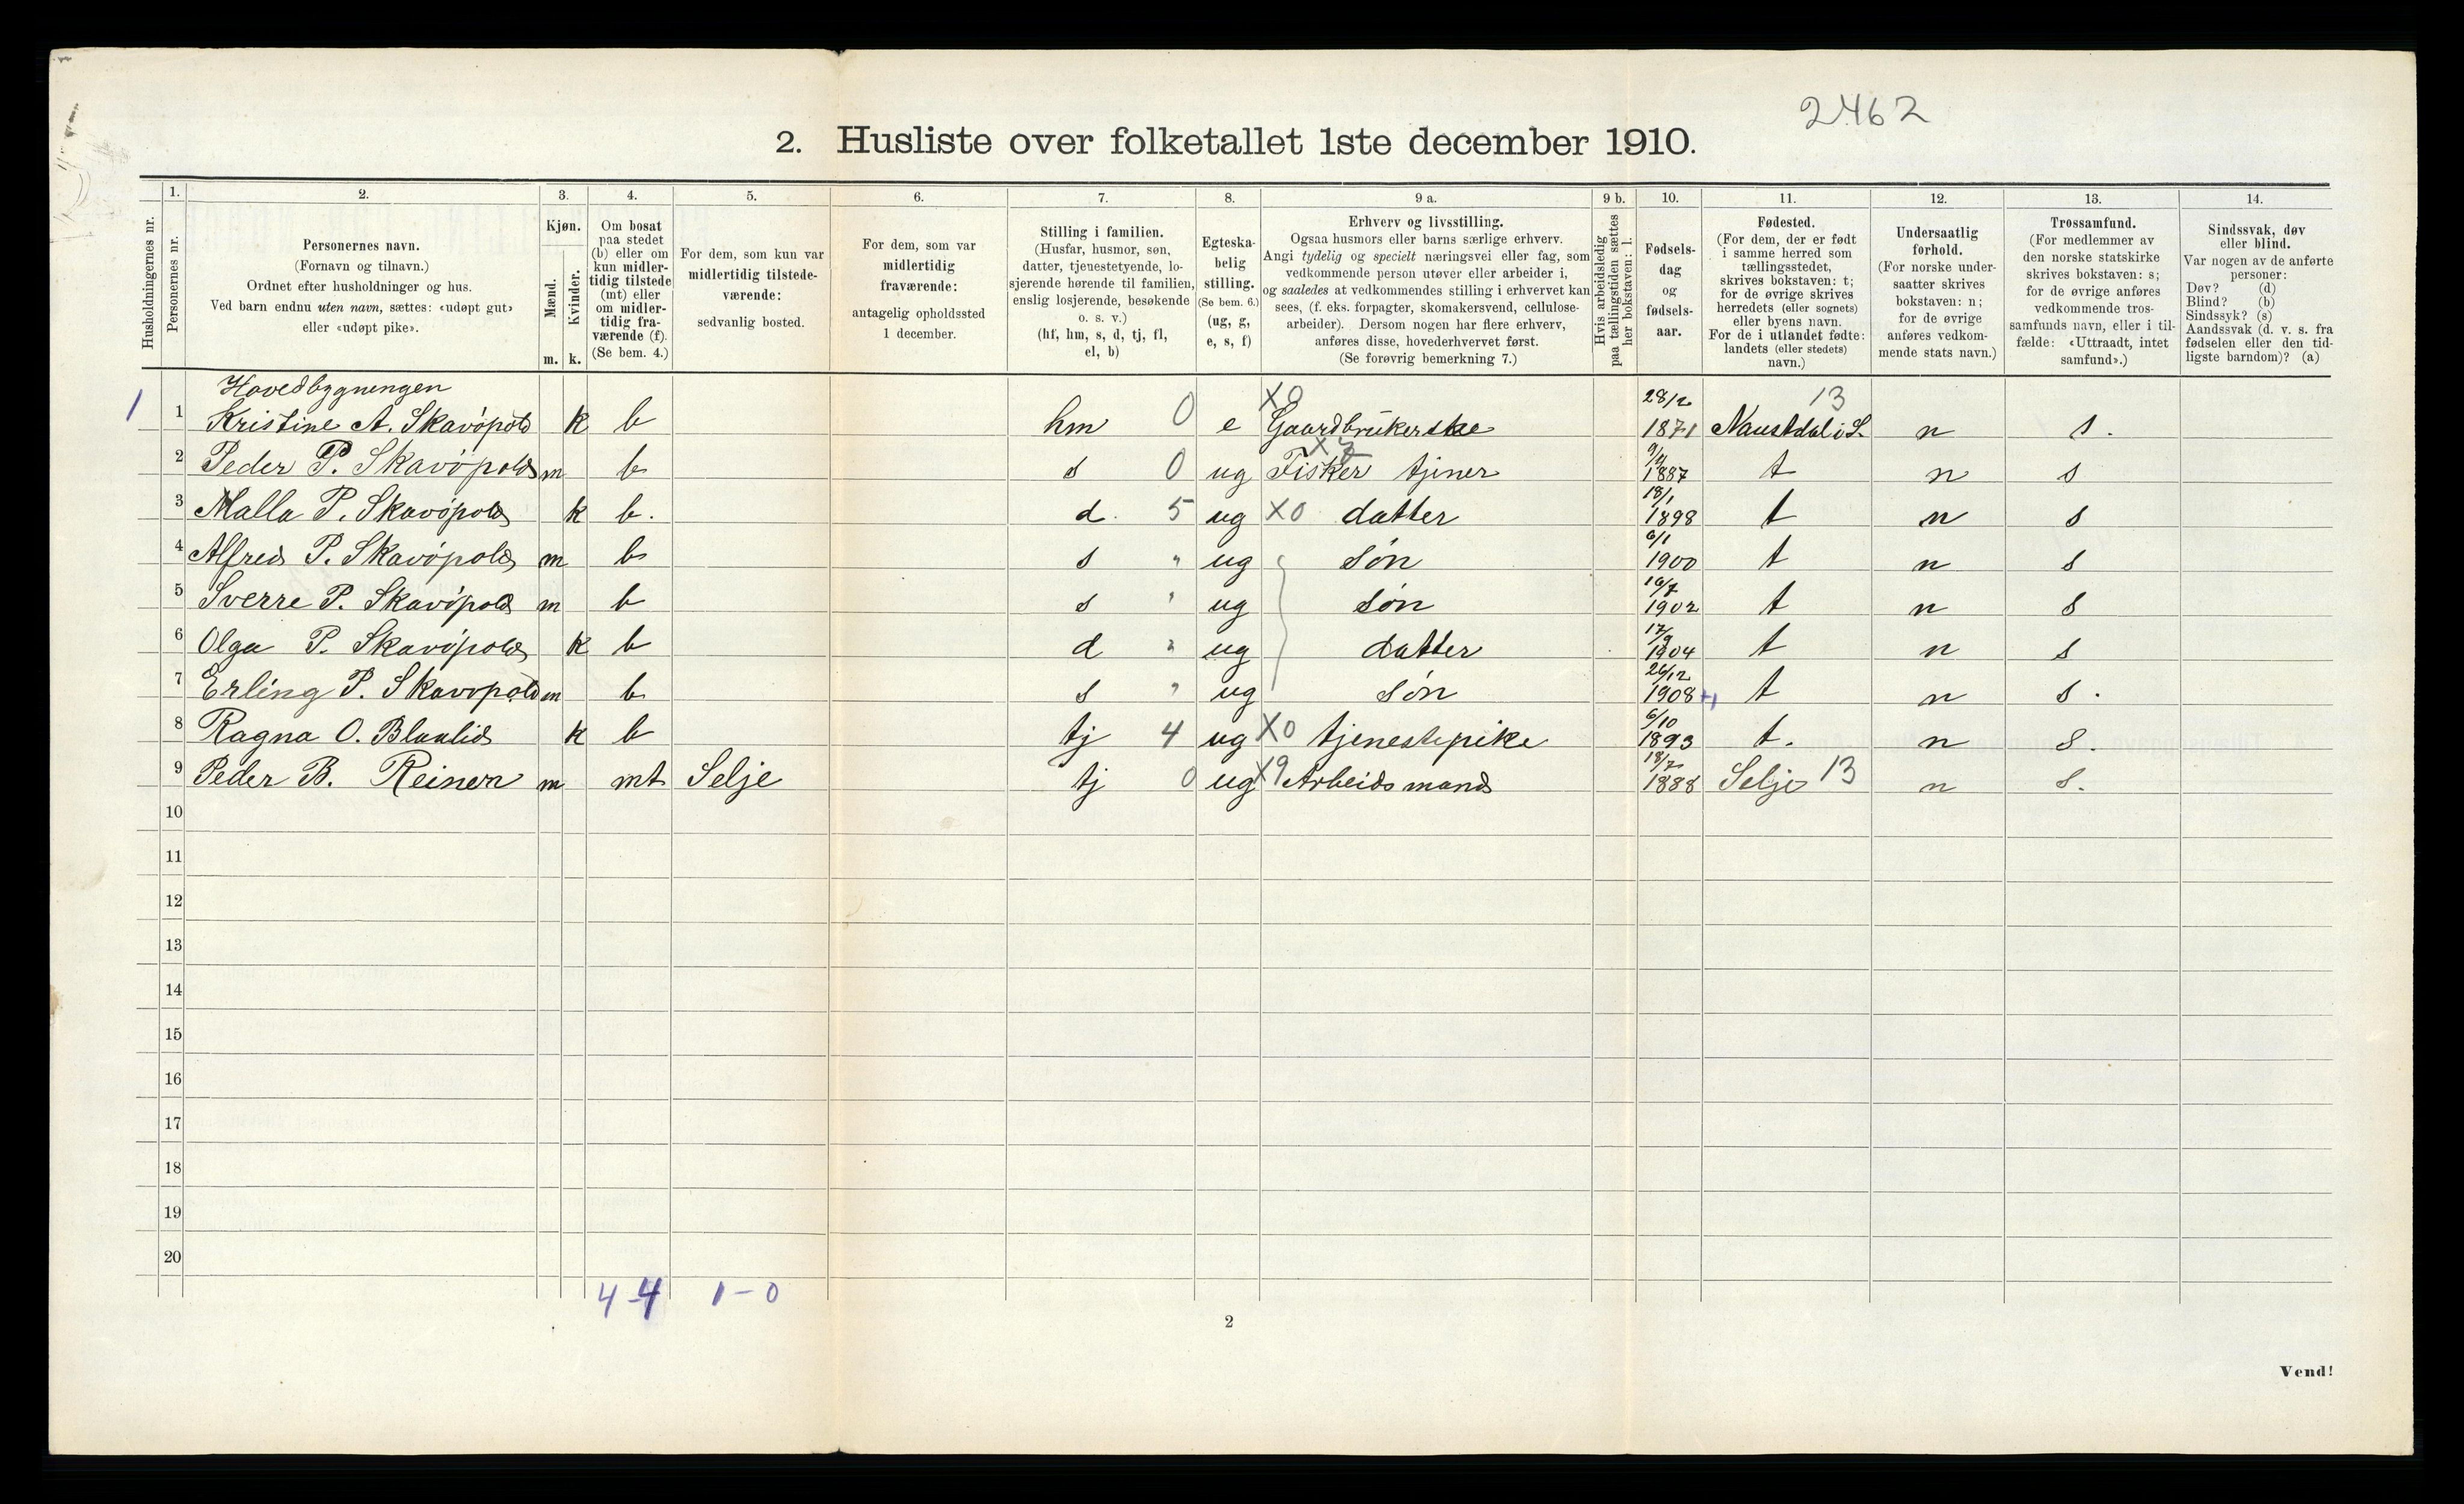 2462
2. Husliste over folketallet 1ste december 1910.
1. 2. 3. 4. 5. 6. 7. 8. 9 a. 9 b. 10. 11. 12. 13. 14.
Husholdningernes nr.
Personernes nr.
Personernes navn.
(Fornavn og tilnavn.)
Ordnet efter husholdninger og hus.
Ved barn endnu uten navn, sættes: «udøpt gut»
eller «udøpt pike».
Kjøn.
Mænd.
Kvinder.
m. k.
Om bosat
paa stedet
(b) eller om
kun midler-
tidig tilstede
(mt) eller
om midler-
tidig fra-
værende (f).
(Se bem. 4.)
For dem, som kun var
midlertidig tilstede-
værende:
sedvanlig bosted.
For dem, som var
midlertidig
fraværende:
antagelig opholdssted
1 december.
Stilling i familien.
(Husfar, husmor, søn,
datter, tjenestetyende, lo-
sjerende hørende til familien,
enslig losjerende, besøkende
o. s. v.)
(hf, hm, s, d, tj, fl,
el, b)
Egteska-
belig
stilling.
(Se bem. 6.)
(ug, g,
e, s, f)
Erhverv og livsstilling.
Ogsaa husmors eller barns særlige erhverv.
Angi tydelig og specielt næringsvei eller fag, som
vedkommende person utøver eller arbeider i,
og saaledes at vedkommendes stilling i erhvervet kan
sees, (f. eks. forpagter, skomakersvend, cellulose-
arbeider). Dersom nogen har flere erhverv,
anføres disse, hovederhvervet først.
(Se forøvrig bemerkning 7.)
Hvis arbeidsledig
paa tællingstiden sættes
her bokstaven: l.
Fødsels-
dag
og
fødsels-
aar.
Fødested.
(For dem, der er født
i samme herred som
tællingsstedet,
skrives bokstaven: t;
for de øvrige skrives
herredets (eller sognets)
eller byens navn.
For de i utlandet fødte:
landets (eller stedets)
navn.)
Undersaatlig
forhold.
(For norske under-
saatter skrives
bokstaven: n;
for de øvrige
anføres vedkom-
mende stats navn.)
Trossamfund.
(For medlemmer av
den norske statskirke
skrives bokstaven: s;
for de øvrige anføres
vedkommende tros-
samfunds navn, eller i til-
fælde: «Uttraadt, intet
samfund».)
Sindssvak, døv
eller blind.
Var nogen av de anførte
personer:
Døv? (d)
Blind? (b)
Sindssyk? (s)
Aandssvak (d. v. s. fra
fødselen eller den tid-
ligste barndom)? (a)
Hovedbygningen
1 1 Kristine A. Skavöpold k b hm 0 e X0 Gaardbrukerske 28/2 1871 Naustdal i S. 13 n s.
2 Peder P. Skavöpold m b s 0 ug Fisker tjener 9/4 1887 t n s
3 Malla P. Skavöpold k b. d. 5 ug X0 datter 18/1 1898 t n s
4 Alfred P. Skavöpold m b s " ug søn 6/1 1900 t n s
5 Sverre P. Skavöpold m b s " ug søn 16/7 1902 t n s
6 Olga P. Skavöpold k b d " ug datter 17/9 1904 t n s
7 Erling P. Skavopold m b s " ug søn 26/12 1908 t n s.
8 Ragna O. Blaalid k b tj 4 ug X0 tjenestepike 6/10 1893 t. n s.
9 Peder B. Reinen m mt Selje tj 0 ug X9 Arbeidsmand 18/7 1888 Selje 13 n s.
10
11
12
13
14
15
16
17
18
19
20
4-4 1-0
2
Vend!